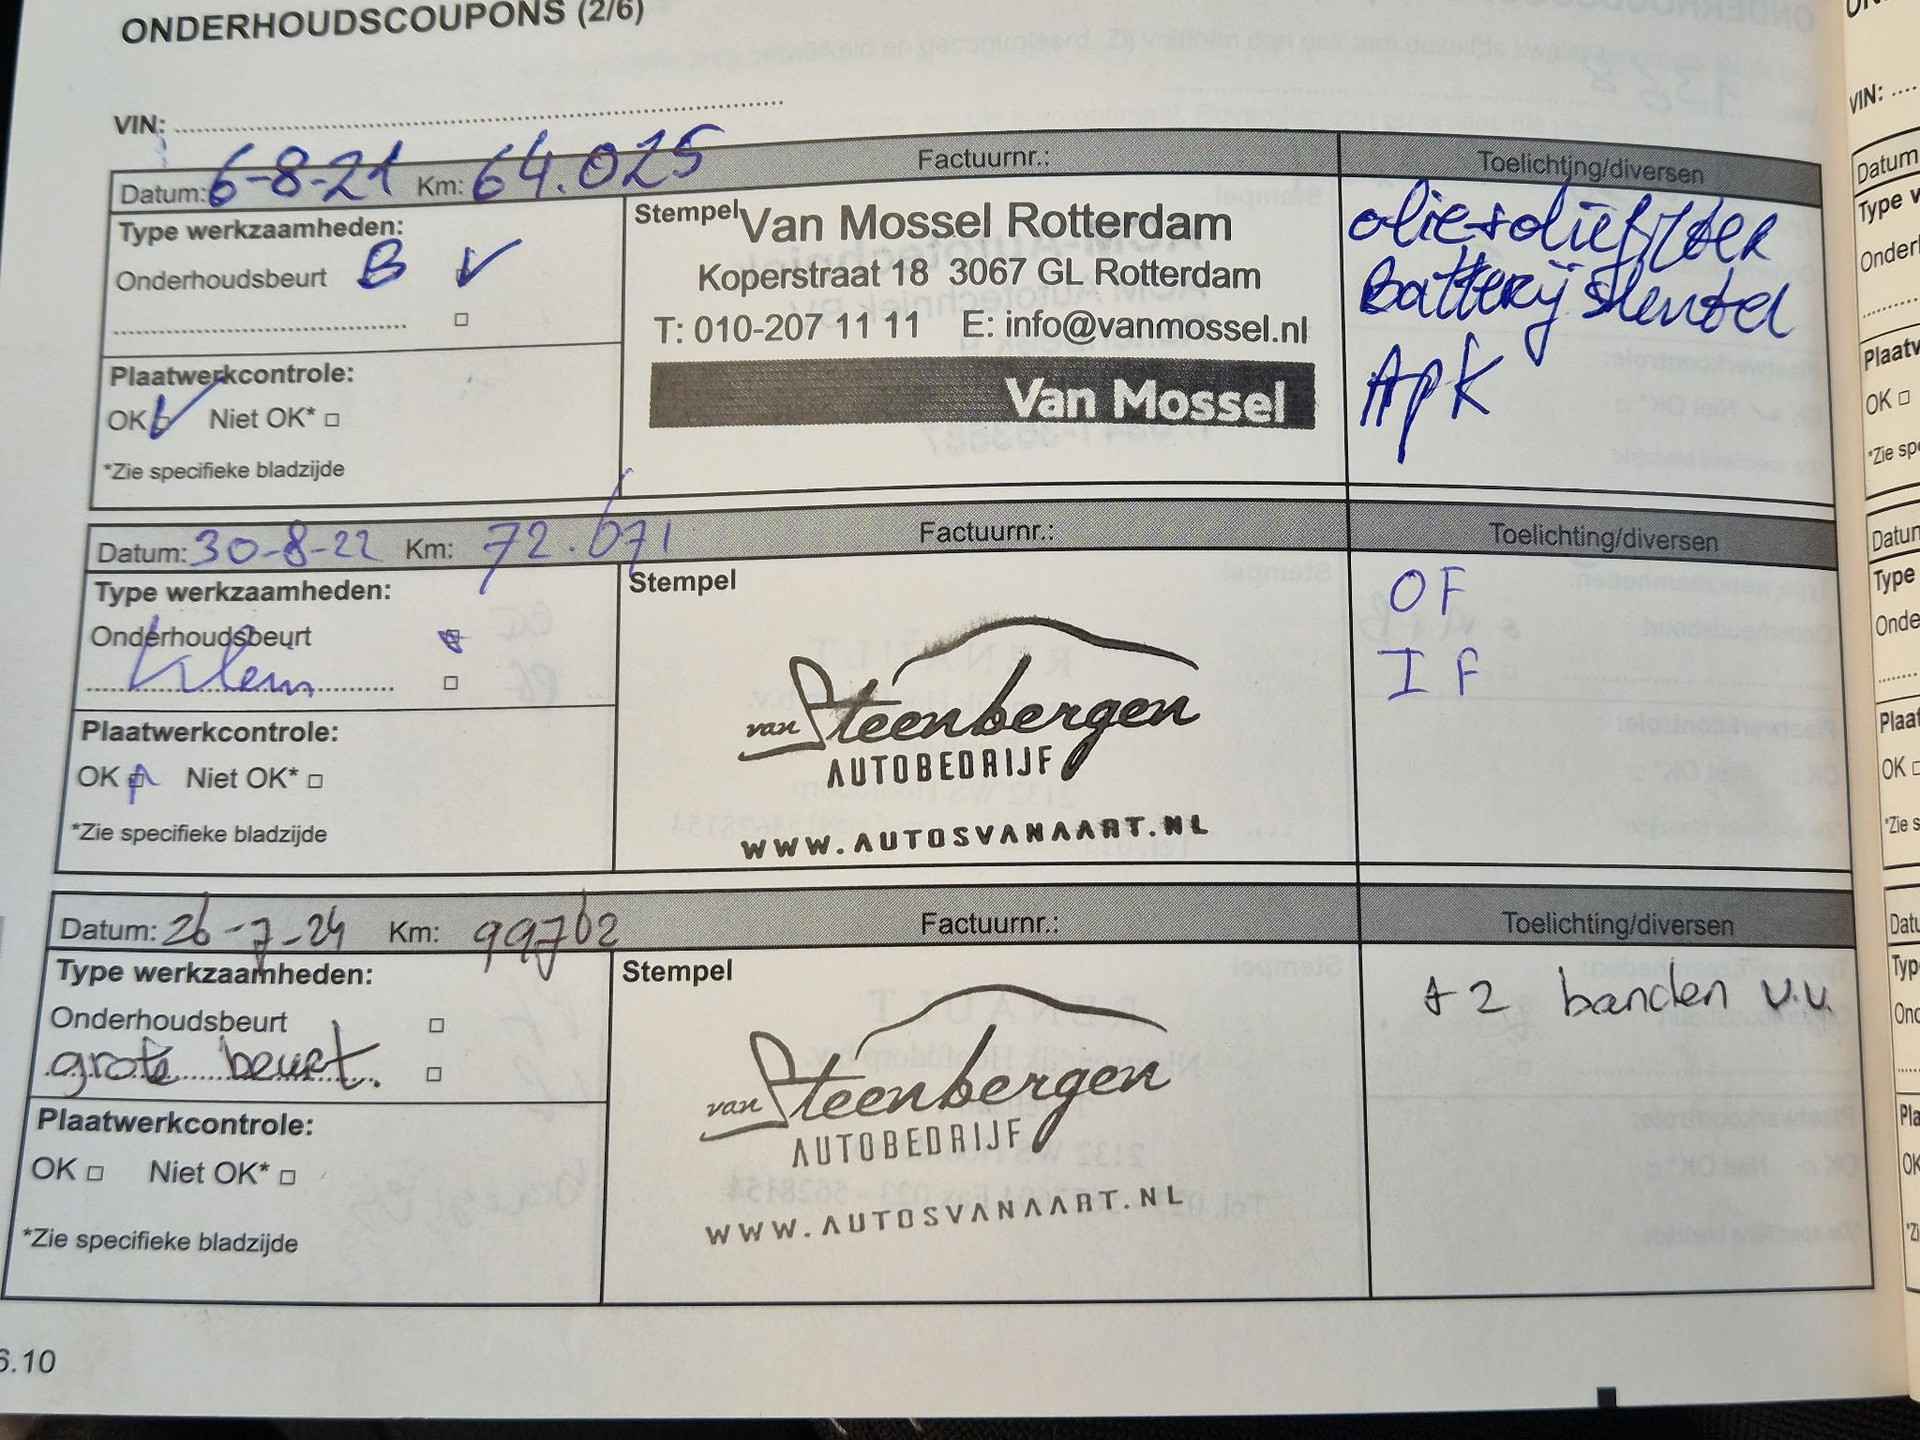 ONDERHOUDSCOUPONS (2/6)
VIN:
Datum: 6-8-21 Km: 64.025 Factuurnr.: Toelichting/diversen
Type werkzaamheden:
Onderhoudsbeurt B
Stempel
Van Mossel Rotterdam
Koperstraat 18 3067 GL Rotterdam
T: 010-207 11 11 E: info@vanmossel.nl
Van Mossel
olie+oliefilter
Batterij sleutel
APK
Plaatwerkcontrole:
OK Niet OK*
*Zie specifieke bladzijde
Datum: 30-8-22 Km: 72.671 Factuurnr.: Toelichting/diversen
Type werkzaamheden:
Onderhoudsbeurt
Klein
Stempel
van Steenbergen
AUTOBEDRIJF
WWW.AUTOSVANAART.NL
OF
IF
Plaatwerkcontrole:
OK Niet OK*
*Zie specifieke bladzijde
Datum: 26-7-24 Km: 99762 Factuurnr.: Toelichting/diversen
Type werkzaamheden:
Onderhoudsbeurt
grote beurt.
Stempel
van Steenbergen
AUTOBEDRIJF
WWW.AUTOSVANAART.NL
+2 banden v.v.
Plaatwerkcontrole:
OK Niet OK*
*Zie specifieke bladzijde
6.10
VIN:
Datum
Type
OK
Datum
Type
OK
Type
OK